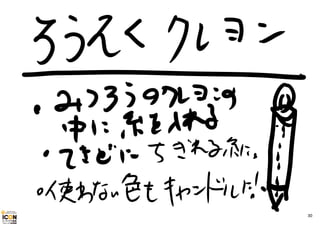 ろうえく クレヨン
・みつろうのクレヨンの
中に 糸を入れる
・てきどに ちぎれる糸に。
・使わない色も キャンドルに!
30